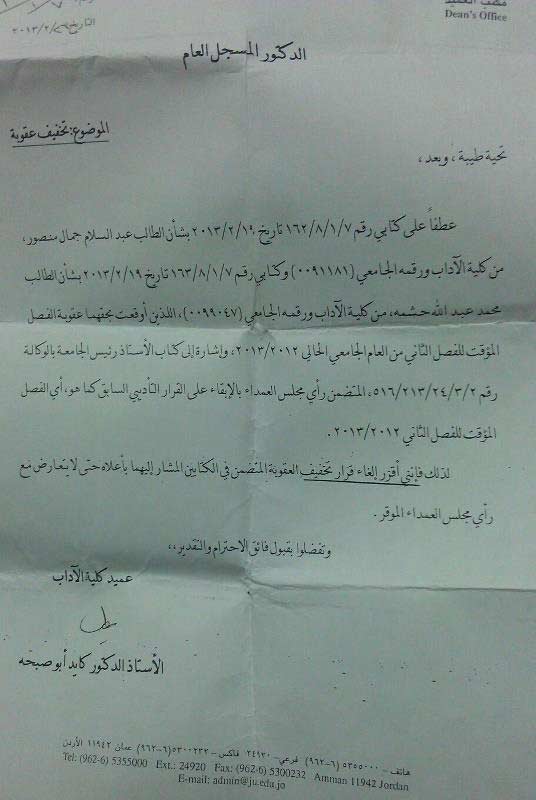 مكتب العميد
Dean's Office
التاريخ ٢٠١٣/٢/
الدكتور المسجل العام
الموضوع: تخفيف عقوبة
تحية طيبة ، وبعد ،
عطفاً على كتابي رقم ١٦٢/٨/١/٧ تاريخ ٢٠١٣/٢/١٩ بشأن الطالب عبد السلام جمال منصور،
من كلية الآداب ورقمه الجامعي (٠٠٩١١٨١) وكتابي رقم ١٦٣/٨/١/٧ تاريخ ٢٠١٣/٢/١٩ بشأن الطالب
محمد عبد الله حشمه، من كلية الآداب ورقمه الجامعي (٠٠٩٩٠٤٧)، اللذين أوقعت بحقهما عقوبة الفصل
المؤقت للفصل الثاني من العام الجامعي الحالي ٢٠١٣/٢٠١٢، وإشارة إلى كتاب الأستاذ رئيس الجامعة بالوكالة
رقم ٥١٦/٢١٣/٢٤/٣/٢، المتضمن رأي مجلس العمداء بالإبقاء على القرار التأديبي السابق كما هو، أي الفصل
المؤقت للفصل الثاني ٢٠١٣/٢٠١٢ .
لذلك فإنني أقرر إلغاء قرار تخفيف العقوبة المتضمن في الكتابين المشار إليهما بأعلاه حتى لا يتعارض مع
رأي مجلس العمداء الموقر .
وتفضلوا بقبول فائق الاحترام والتقدير،،
عميد كلية الآداب
الأستاذ الدكتور كايد أبو صبحه
هاتف – ٥٣٥٥٠٠٠ (٦–٩٦٢) فرعي – ٢٤٩٢٠ فاكس – ٥٣٠٠٢٣٢ (٦–٩٦٢) عمان ١١٩٤٢ الأردن
Tel: (962-6) 5355000 Ext.: 24920 Fax: (962-6) 5300232 Amman 11942 Jordan
E-mail: admin@ju.edu.jo